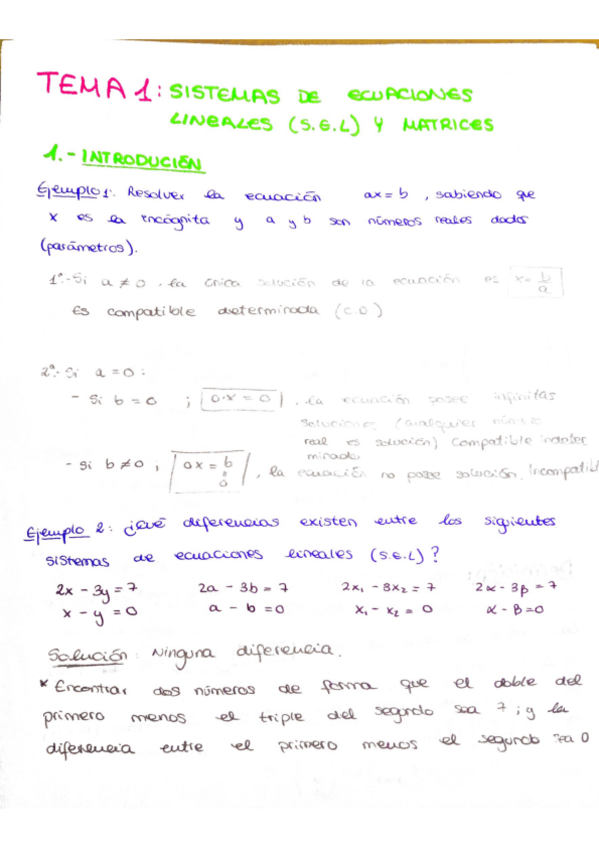 TEMA 1: SISTEMAS DE ECUACIONES
LINEALES (S.E.L) Y MATRICES
1.- INTRODUCIÓN
Ejemplo 1: Resolver la ecuación ax = b, sabiendo que
x es la incógnita y a y b son números reales dados
(parámetros).
1º.- Si a ≠ 0, la única solución de la ecuación es x = b/a
Es compatible determinada (C.D)
2º.- Si a = 0:
- Si b = 0 ; 0·x = 0, la ecuación posee infinitas
soluciones (cualquier número
real es solución) Compatible indeter
minada
- Si b ≠ 0, 0x = b, la ecuación no posee solución. Incompatibl
0
Ejemplo 2: ¿Qué diferencias existen entre los siguientes
sistemas de ecuaciones lineales (S.E.L)?
2x - 3y = 7 2a - 3b = 7 2x₁ - 3x₂ = 7 2α - 3β = 7
x - y = 0 a - b = 0 x₁ - x₂ = 0 α - β = 0
Solución: Ninguna diferencia.
* Encontrar dos números de forma que el doble del
primero menos el triple del segundo sea 7 ; y la
diferencia entre el primero menos el segundo sea 0